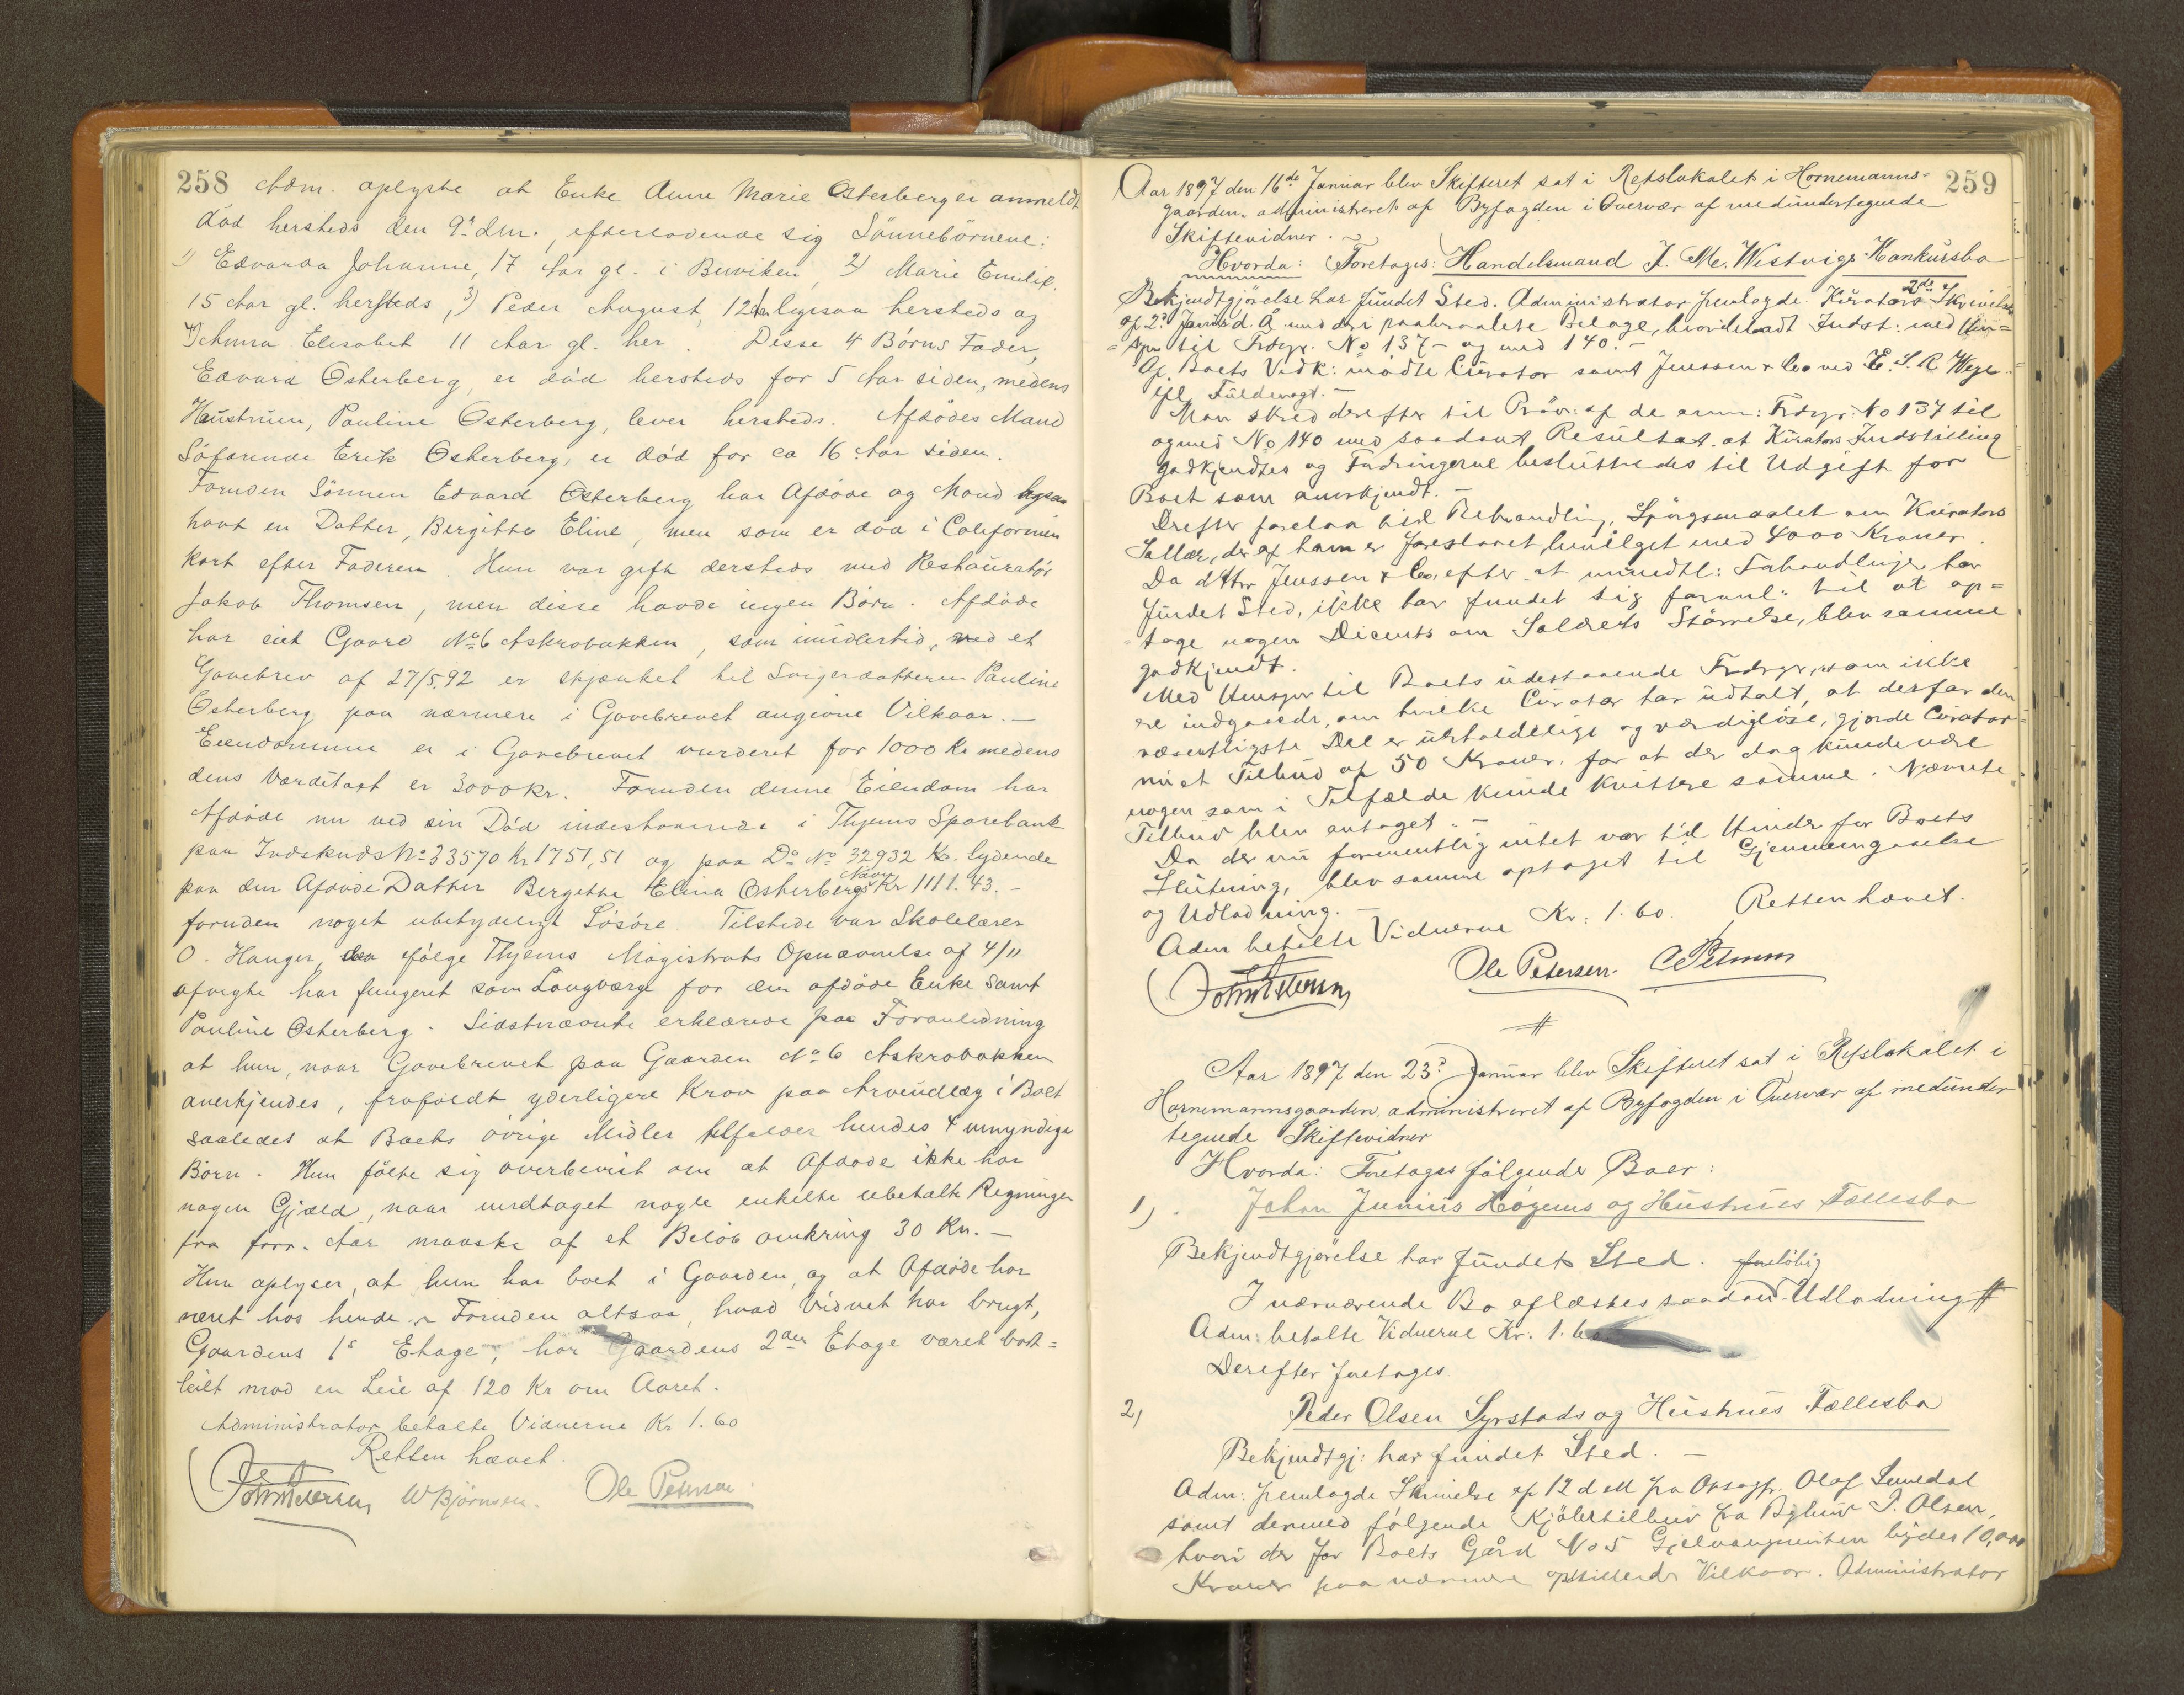 258 Adm. oplyste at Enke Anne Marie Osterberg er anmeldt
död hersteds den 9d dm., efterladende sig Sönnebörnene:
1) Edvarda Johanne, 17 Aar gl. i Buviken, 2) Marie Emilie
15 Aar gl. hersteds, 3) Peder August, 12 A. ligesaa hersteds og
4) Anna Elisabet 11 Aar gl. her. Disse 4 Börns Fader,
Edvard Osterberg, er död hersteds for 5 Aar siden, medens
Haustruen, Pauline Osterberg, lever hersteds. Afdödes Mand
Söfarende Erik Osterberg, er död for ca 16 Aar siden.
Foruden Sönnen Edvard Osterberg har Afdöde og Mand ligesaa
havt en Datter, Bergitte Eline, men som er död i Californien
kort efter Faderen. Hun var gift dersteds med Restauratör
Jakob Thomsen, men disse havde ingen Börn. Afdöde
har eiet Gaard No 6 Askrabakken, som imidlertid, ved et
Gavebrev af 27/5.92 er skjænket til Svigerdatteren Pauline
Osterberg paa nærmere i Gavebrevet angivne Vilkaar.—
Eiendommen er i Gavebrevet vurderet for 1000 Kr medens
dens Værditaxt er 3000 Kr. Foruden denne Eiendom har
Afdöde nu ved sin Död indestaaende i Thjems Sparebank
paa Indskuds No 33570 Kr 1751,51 og paa Do No 32932 Kr. lydende
paa den Afdöde Datter Bergitte Elina Osterbergs Navn Kr 1111. 43.-
foruden noget ubetydeligt Lösöre. Tilstede var Skolelærer
O. Hauger, der efölge Thjems Magistrats Opnævnelse af 4/11
afvigte har fungeret som Laugværge for den afdöde Enke samt
Pauline Osterberg. Sidstnævnte erklærede paa Foranledning
at hun, naar Gavebrevet paa Gaarden No 6 Askrabakken
anerkjendes, frafaldt yderligere Krav paa Arveudlæg i Boet
saaledes at Boets övrige Midler tilfalder hendes 4 umyndige
Börn. Hun fölte sig overbevist om at Afdöde ikke har
nogen Gjæld, naar undtaget nogle enkelte ubetalte Regninger
fra forr. Aar maaske af et Belöb omkring 30 Kr.—
Hun oplyser, at hun har boet i Gaarden, og at Afdöde har
været hos hende. Foruden altsaa, hvad Vidnet har brugt,
Gaardens 1s Etage, har Gaardens 2den Etage været bort=
leiet mod en Leie af 120 Kr om Aaret.
Administrator betalte Vidnerne Kr 1.60
Retten hævet.
W Bjørnsen. Ole Petersen.
259
Aar 1897 den 16de Januar blev Skifteret sat i Retslokalet i Hornemanns-
gaarden, administreret af Byfogden i Overvær af medundertegnede
Skiftevidner.
Hvorda: Foretoges: Handelsmand J. M. Westvigs Konkursbo
Bekjendtgjörelse har fundet Sted. Administrator fremlagde Kurators 2de Skrivelser
af 2d Januar d. A. med deri paaberaabte Bilage, hvoriblandt Indst: med Hen=
=syn til Fordr. No 137 – og med 140.–
Af Boets Vedk: mödte Curator samt Jenssen & Co ved E. S. R. Wege
ifl. Fuldmagt.–
Man skred derefter til Pröv: af de anm: Fordr: No 137 til
og med No 140 med saadant Resultat, at Kurators Indstilling
godkjendtes og Fordringerne besluttedes til Udgift for
Boet som anerkjendt.–
Derefter forelaa til Behandling, Spörgsmaalet om Kurators
Sallær, der af ham er foreslaaet bevilget med 4000 Kroner.
Da dHrr Jenssen & Co, efter at mundtl: Forhandlinger har
fundet Sted, ikke har fundet sig foranl. til at op=
=tage nogen Dicents om Salærets Störrelse, blev samme
godkjendt.
Med Hensyn til Boets udestaaende Fordgr, som ikke
ere indgaaede, om hvilke Curator har udtalt, at desfor den
væsentligste Del er uerholdelige og værdiglöse, gjorde Curator
nu et Tilbud af 50 Kroner, for at der dog kunde være
nogen som i Tilfælde kunde kvittere samme. Nævnte
Tilbud blev antaget.–
Da der nu formentlig intet var til Hinder for Boets
Slutning, blev samme optaget til Gjennemgaaelse
og Udlodning.–
Adm betalte Vidnerne Kr: 1.60. Retten hævet.
Ole Petersen. C Petersen
Aar 1897 den 23d Januar blev Skifteret sat i Retslokalet i
Hornemannsgaarden, administreret af Byfogden i Overvær af medunder
tegnede Skiftevidner
Hvorda: Foretoges fölgende Boer:
1) Johan Junius Högems og Hustrues Fællesbo
Bekjendtgjörelse har fundet Sted. foreløbig
I nærværende Bo aflæstes saadan Udlodning #
Adm: betalte Vidnerne Kr: 1.60
Derefter foretoges.
2) Peder Olsen Syrstads og Hustrues Fællesbo
Bekjendtgj: har fundet Sted.–
Adm: fremlagde Skrivelse af 12 d M fra Ovsagf. Olaf Semedal
samt dermed fölgende Kjöbetilbud fra P. Olsen,
hvori der for Boets Gård No 5 bydes 10,000
Kroner paa nærmere opstillede Vilkaar. Administrator